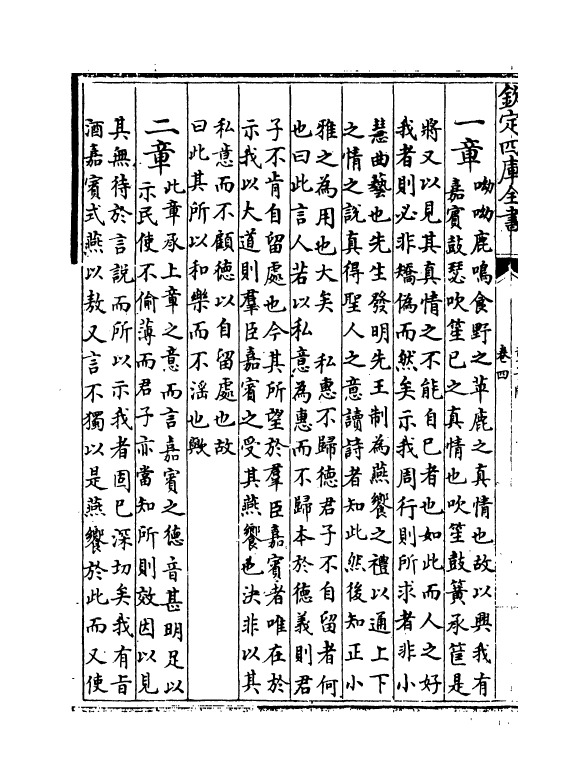 欽定四庫全書
卷四
一章 呦呦鹿鳴食野之苹鹿之真情也故以興我有
嘉賓鼓瑟吹笙已之真情也吹笙鼓簧承筐是
將又以見其真情之不能自已者也如此而人之好
我者則必非矯偽而然矣示我周行則所求者非小
慧曲藝也先生發明先王制為燕饗之禮以通上下
之情之說真得聖人之意讀詩者知此然後知正小
雅之為用也大矣 私惠不歸德君子不自留者何
也曰此言人若以私意為惠而不歸本於德義則君
子不肯自留處也今其所望於羣臣嘉賓者唯在於
示我以大道則羣臣嘉賓之受其燕饗也決非以其
私意而不顧德以自留處也故
曰此其所以和樂而不滛也歟
二章 此章承上章之意而言嘉賓之德音甚明足以
示民使不偷薄而君子亦當知所則效因以見
其無待於言說而所以示我者固已深切矣我有旨
酒嘉賓式燕以敖又言不獨以是燕饗於此而又使